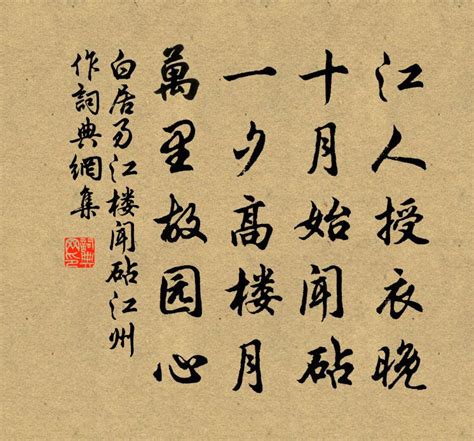 江人授衣晚
十月始闻砧
一夕高楼月
萬里故园心
白居易江楼闻砧江州
作詞典網集
詞典網印